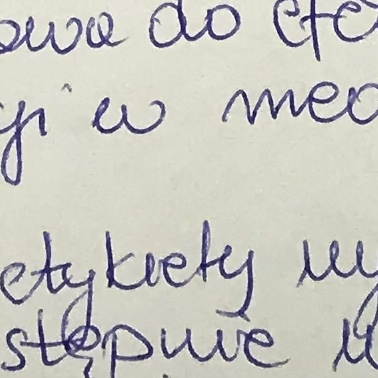 owa do efe
ji w med
etykiety w
stępnie u